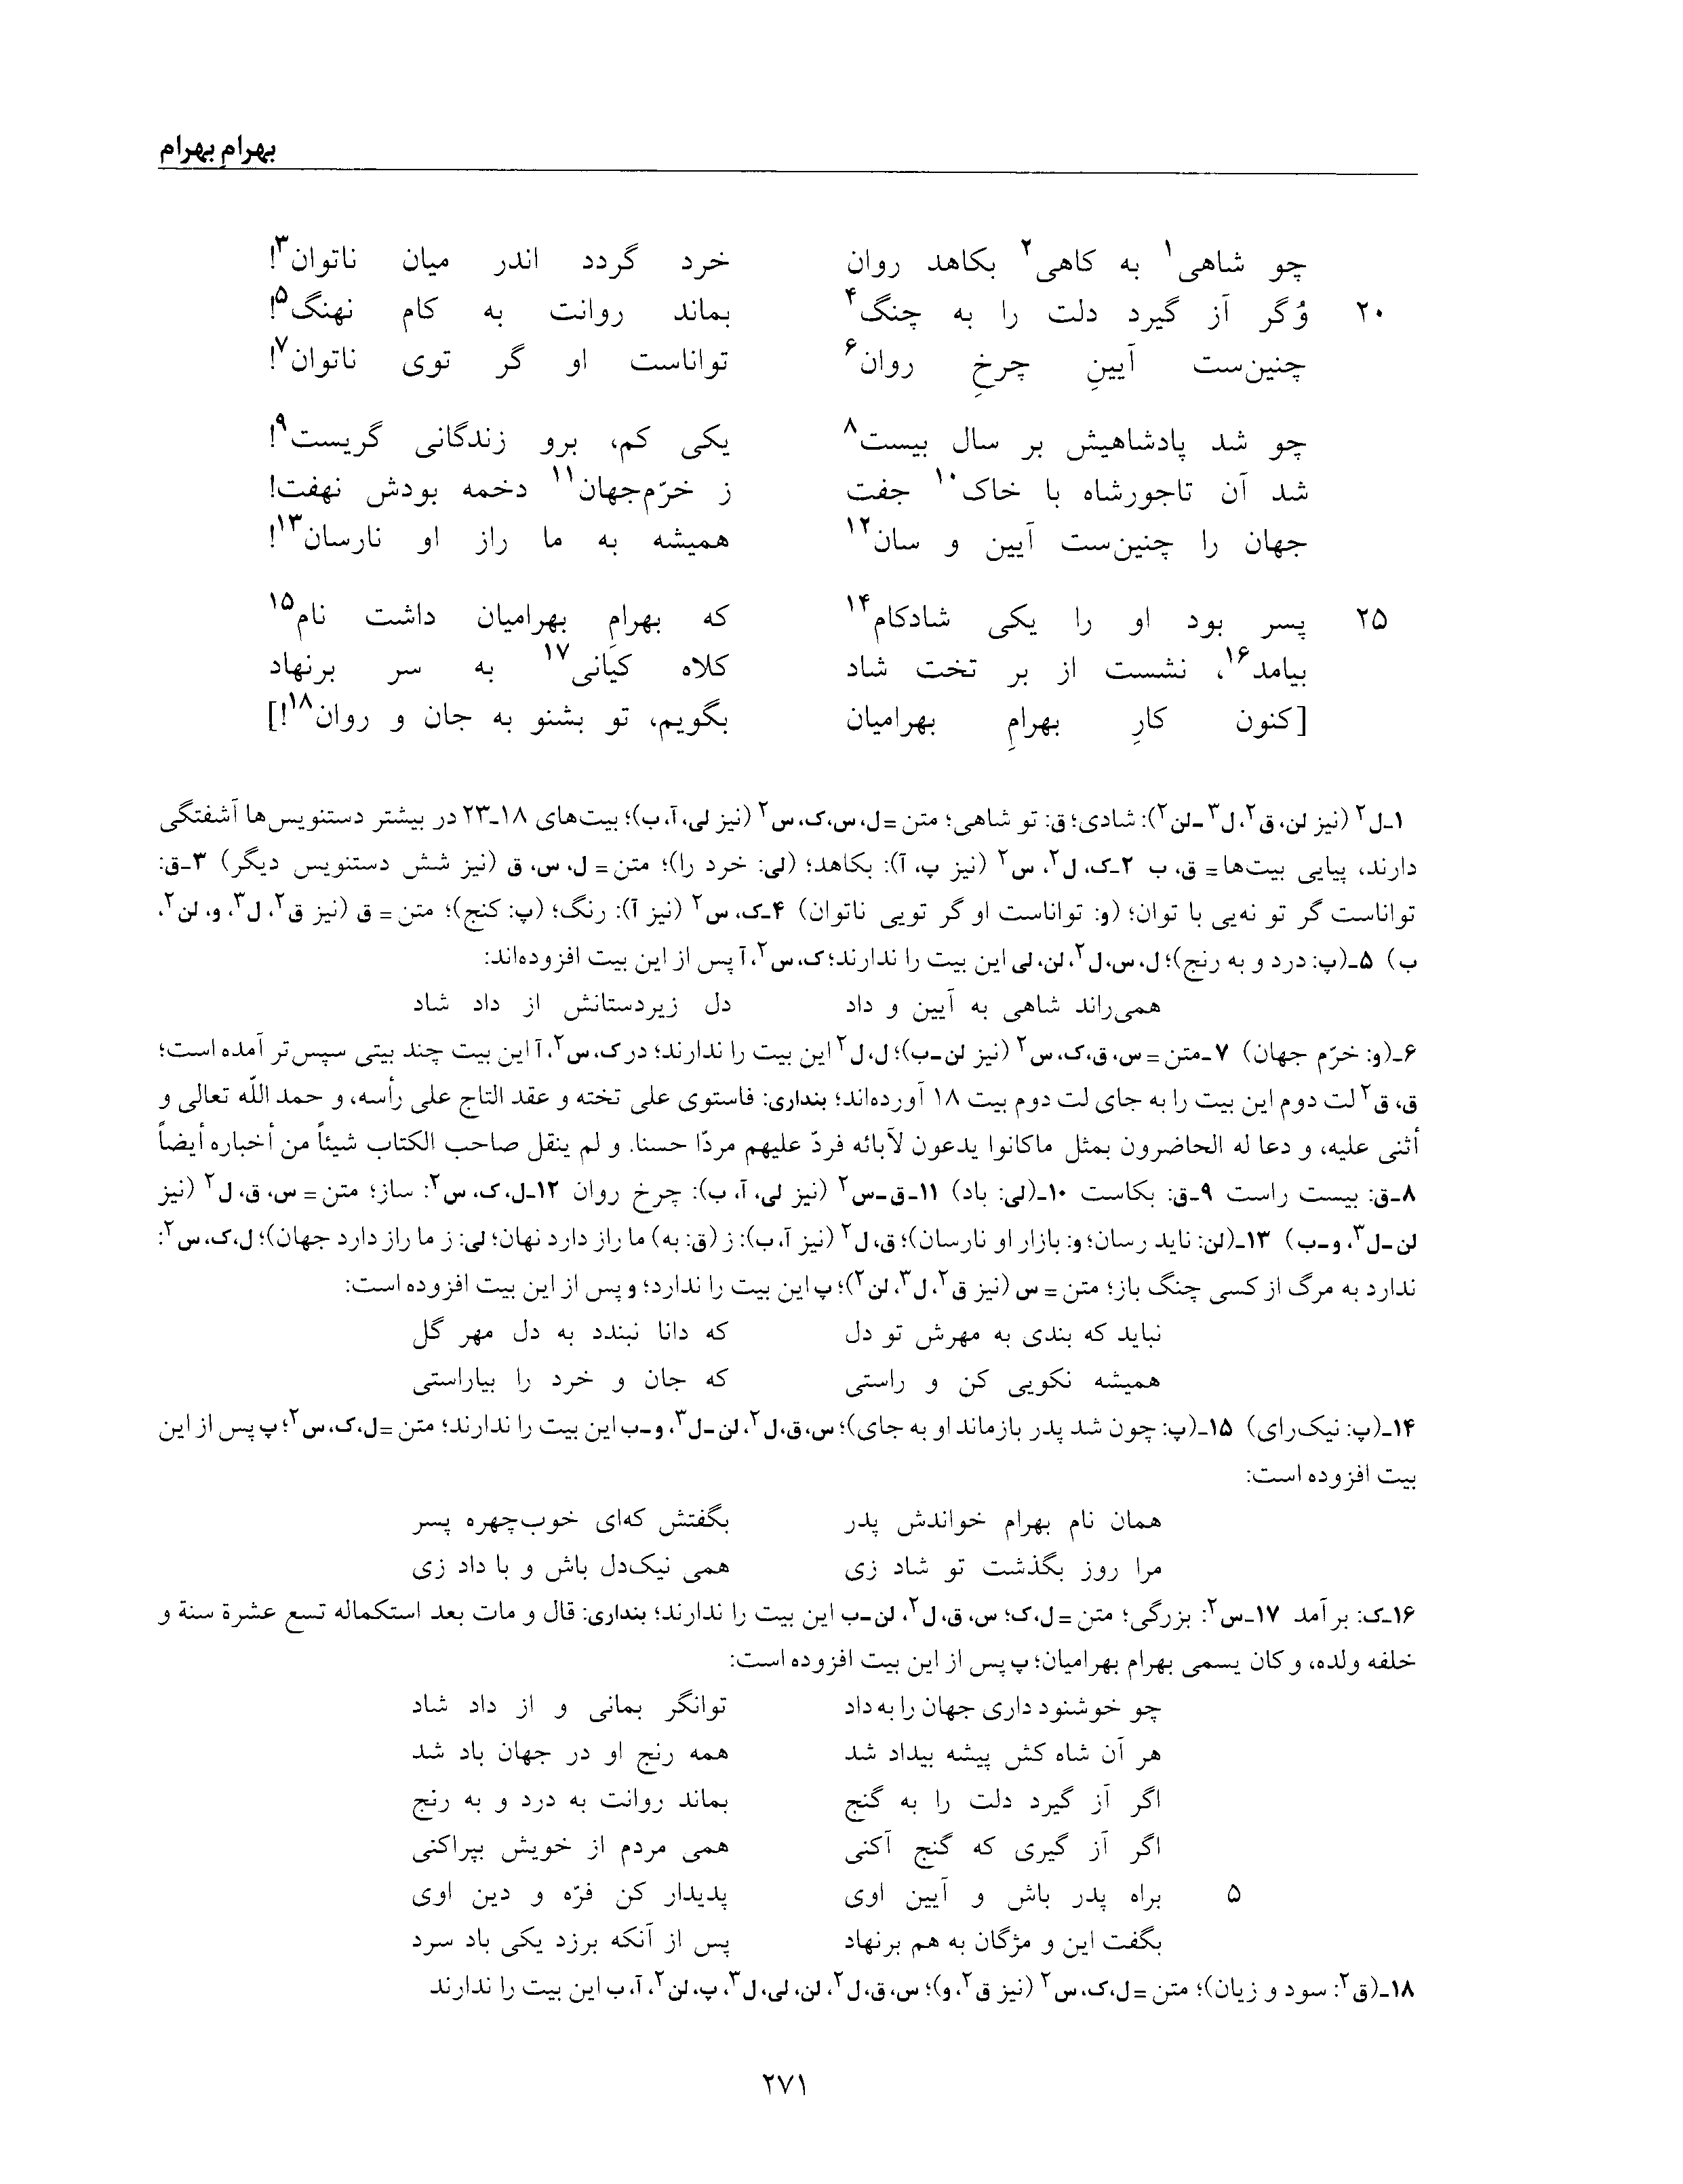 بهرامِ بهرام
چو شاهی۱ به کاهی۲ بکاهد روان خرد گردد اندر میان ناتوان۳!
۲۰ وُگر آز گیرد دلت را به چنگ۴ بماند روانت به کام نهنگ۵!
چنین‌ست آیینِ چرخِ روان۶ تواناست او گر توی ناتوان۷!
چو شد پادشاهیش بر سال بیست۸ یکی کم، برو زندگانی گریست۹!
شد آن تاجورشاه با خاک۱۰ جفت ز خرّم‌جهان۱۱ دخمه بودش نهفت!
جهان را چنین‌ست آیین و سان۱۲ همیشه به ما راز او نارسان۱۳!
۲۵ پسر بود او را یکی شادکام۱۴ که بهرامِ بهرامیان داشت نام۱۵
بیامد۱۶، نشست از بر تخت شاد کلاه کیانی۱۷ به سر برنهاد
[کنون کارِ بهرامِ بهرامیان بگویم، تو بشنو به جان و روان۱۸!]
۱ـ ل۲ (نیز لن، ق۲، ل۳ ـ لن۲): شادی؛ ق: تو شاهی؛ متن = ل، س، ک، س۲ (نیز لی، آ، ب)؛ بیت‌های ۱۸ـ۲۳ در بیشتر دستنویس‌ها آشفتگی
دارند، پیایی بیت‌ها = ق، ب ۲ـ ک، ل۲، س۲ (نیز پ، آ): بکاهد؛ (لی: خرد را)؛ متن = ل، س، ق (نیز شش دستنویس دیگر) ۳ـ ق:
تواناست گر تو نه‌یی با توان؛ (و: تواناست او گر تویی ناتوان) ۴ـ ک، س۲ (نیز آ): رنگ؛ (پ: کنج)؛ متن = ق (نیز ق۲، ل۳، و، لن۲،
ب) ۵ـ (پ: درد و به رنج)؛ ل، س، ل۲، لن، لی این بیت را ندارند؛ ک، س۲، آ پس از این بیت افزوده‌اند:
همی‌راند شاهی به آیین و داد دل زیردستانش از داد شاد
۶ـ (و: خرّم جهان) ۷ـ متن = س، ق، ک، س۲ (نیز لن ـ ب)؛ ل، ل۲ این بیت را ندارند؛ در ک، س۲، آ این بیت چند بیتی سپس‌تر آمده است؛
ق، ق۲ لت دوم این بیت را به جای لت دوم بیت ۱۸ آورده‌اند؛ بنداری: فاستوی علی تخته و عقد التاج علی رأسه، و حمد اللّه تعالی و
أثنی علیه، و دعا له الحاضرون بمثل ماکانوا یدعون لآبائه فردّ علیهم مردّا حسنا. و لم ینقل صاحب الکتاب شیئاً من أخباره أیضاً
۸ـ ق: بیست راست ۹ـ ق: بکاست ۱۰ـ (لی: باد) ۱۱ـ ق ـ س۲ (نیز لی، آ، ب): چرخ روان ۱۲ـ ل، ک، س۲: ساز؛ متن = س، ق، ل۲ (نیز
لن ـ ل۳، و ـ ب) ۱۳ـ (لن: ناید رسان؛ و: بازار او نارسان)؛ ق، ل۲ (نیز آ، ب): ز (ق: به) ما راز دارد نهان؛ لی: ز ما راز دارد جهان)؛ ل، ک، س۲:
ندارد به مرگ از کسی چنگ باز؛ متن = س (نیز ق۲، ل۳، لن۲)؛ پ این بیت را ندارد؛ و پس از این بیت افزوده است:
نباید که بندی به مهرش تو دل که دانا نبندد به دل مهر گل
همیشه نکویی کن و راستی که جان و خرد را بیاراستی
۱۴ـ (پ: نیک‌رای) ۱۵ـ (پ: چون شد پدر بازماند او به جای)؛ س، ق، ل۲، لن ـ ل۳، و ـ ب این بیت را ندارند؛ متن = ل، ک، س۲؛ پ پس از این
بیت افزوده است:
همان نام بهرام خواندش پدر بگفتش که‌ای خوب‌چهره پسر
مرا روز بگذشت تو شاد زی همی نیک‌دل باش و با داد زی
۱۶ـ ک: برآمد ۱۷ـ س۲: بزرگی؛ متن = ل، ک؛ س، ق، ل۲، لن ـ ب این بیت را ندارند؛ بنداری: قال و مات بعد استکماله تسع عشرة سنة و
خلفه ولده، و کان یسمی بهرام بهرامیان؛ پ پس از این بیت افزوده است:
چو خوشنود داری جهان را به داد توانگر بمانی و از داد شاد
هر آن شاه کش پیشه بیداد شد همه رنج او در جهان باد شد
اگر آز گیرد دلت را به گنج بماند روانت به درد و به رنج
اگر آز گیری که گنج آکنی همی مردم از خویش بپراکنی
۵ براه پدر باش و آیین اوی پدیدار کن فرّه و دین اوی
بگفت این و مژگان به هم برنهاد پس از آنکه برزد یکی باد سرد
۱۸ـ (ق۲: سود و زیان)؛ متن = ل، ک، س۲ (نیز ق۲، و)؛ س، ق، ل۲، لن، لی، ل۳، پ، لن۲، آ، ب این بیت را ندارند
۲۷۱